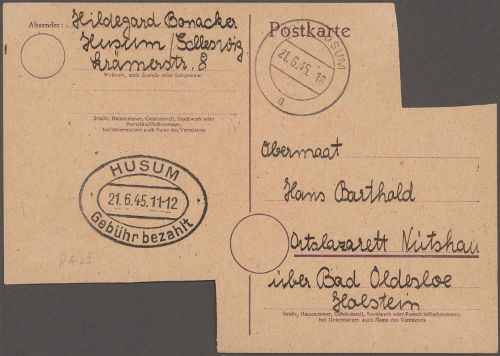 Absender:
Hildegard Bonacker
Husum / Schleswig
Krämerstr. 8
Wohnort, auch Zustell- oder Leitpostamt
Straße, Hausnummer, Gebäudeteil, Stockwerk oder
Postschließfachnummer,
bei Untermietern auch Name des Vermieters
HUSUM
21.6.45.11-12
Gebühr bezahlt
Postkarte
HUSUM
21.6.45.-18
a
Obermaat
Hans Barthold
Ortslazarett Nütschau
über Bad Oldesloe
Holstein
Straße, Hausnummer, Gebäudeteil, Stockwerk oder Postschließfachnummer;
bei Untermietern auch Name des Vermieters